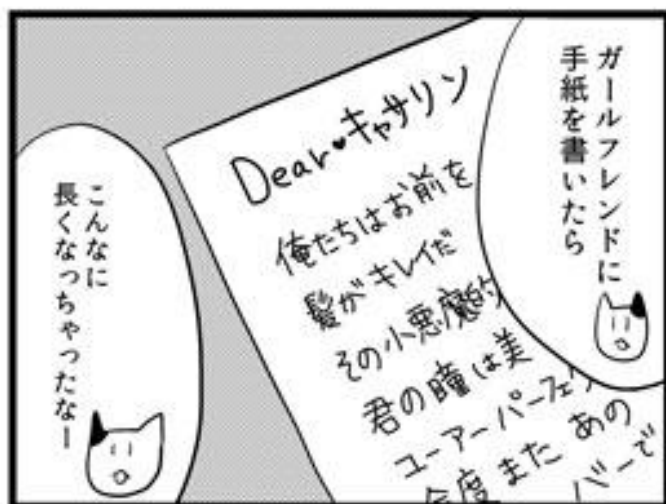 ガールフレンドに
手紙を書いたら
Dear♥キャサリン
俺たちはお前を
髪がキレイだ
その小悪魔的
君の瞳は美
ユーアーパーフェク
今度またあの
バーで
こんなに
長くなっちゃったなー